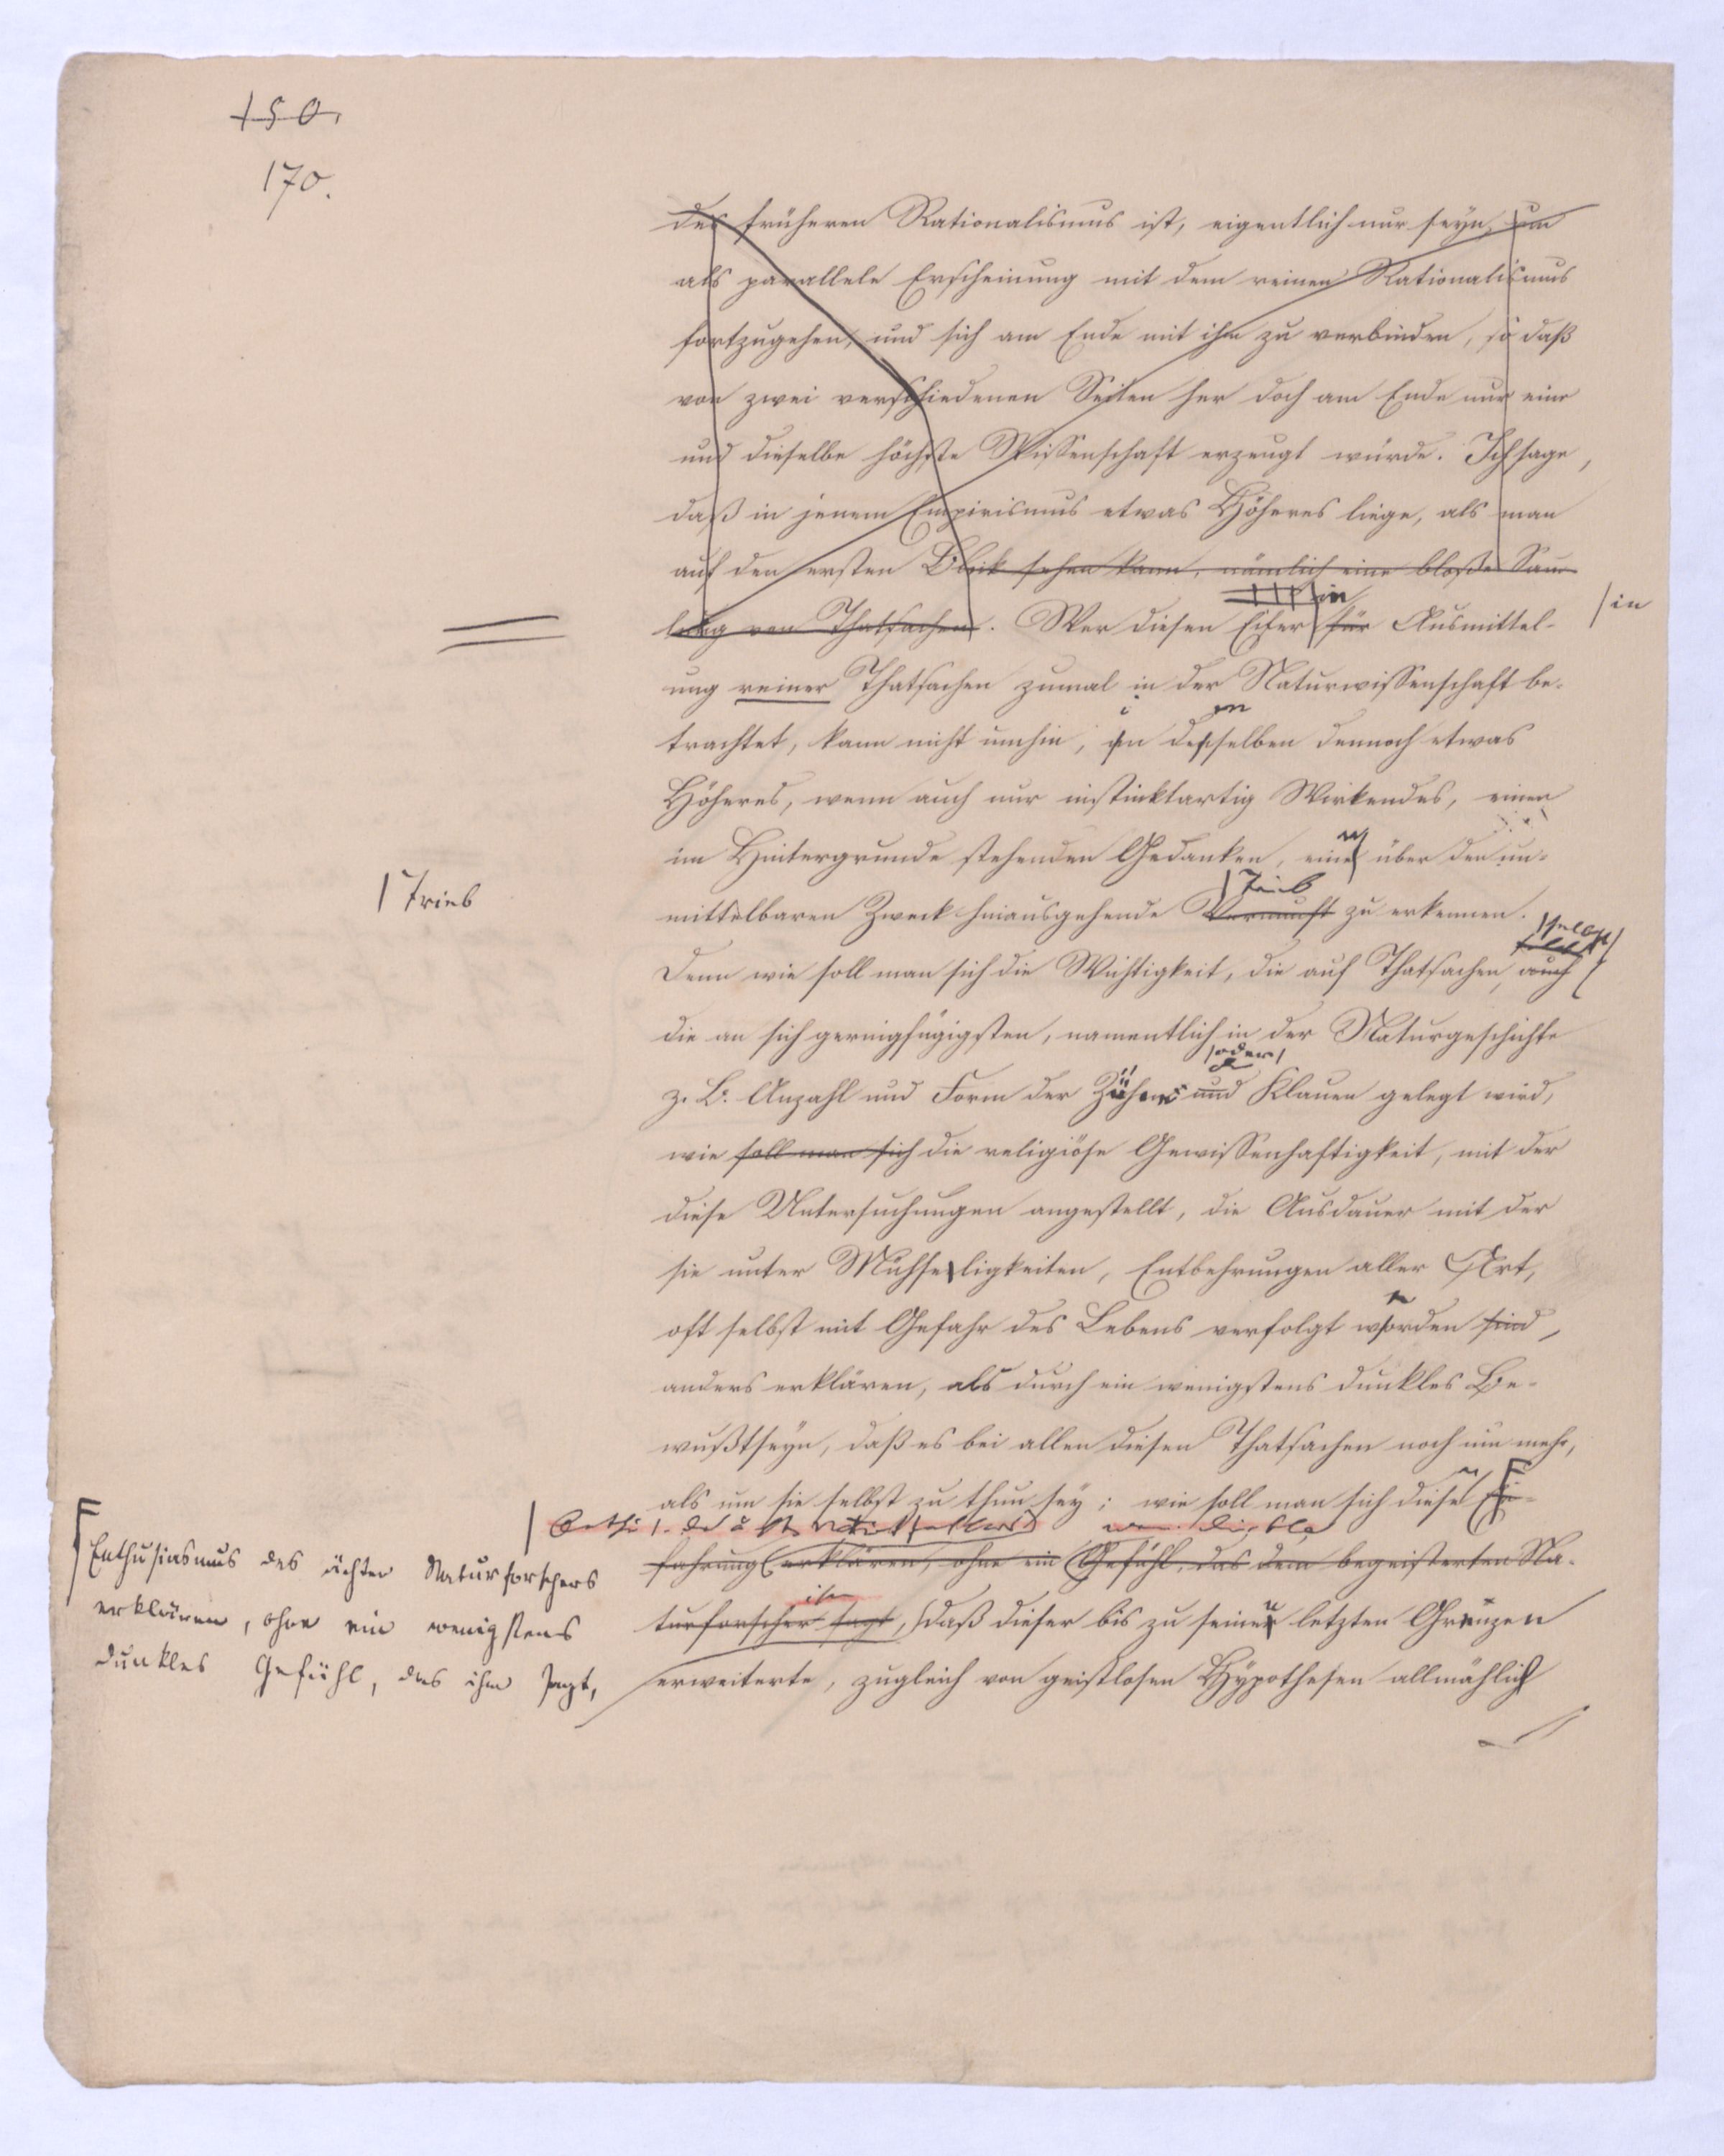 150.
170.
des früheren Rationalismus ist, eigentlich nur seyn, um
als parallele Erscheinung mit dem reinen Rationalismus
fortzugehen, und sich am Ende mit ihm zu verbinden, so daß
von zwei verschiedenen Seiten her doch am Ende nur eine
und dieselbe höchste Wissenschaft erzeugt würde. Ich sage,
daß in jenem Empirismus etwas Höheres liege, als man
auf den ersten Blick sehen kann, nämlich eine bloße Sam
lung von Thatsachen. Wer diesen Eifer für Ausmittel-
in
in
ung reiner Thatsachen zumal in der Naturwissenschaft be-
trachtet, kann nicht umhin, in demselben dennoch etwas
Höheres, wenn auch nur instinktartig Wirkendes, einen
im Hintergrunde stehenden Gedanken, einen über den un-
Trieb
Trieb
mittelbaren Zweck hinausgehende Vernunft zu erkennen.
selbst
Denn wie soll man sich die Wichtigkeit, die auf Thatsachen, auch
die an sich geringfügigsten, namentlich in der Naturgeschichte
oder
z. B. Anzahl und Form der Zähne und Klauen gelegt wird,
wie soll man sich die religiöse Gewissenhaftigkeit, mit der
diese Untersuchungen angestellt, die Ausdauer mit der
sie unter Mühseligkeiten, Entbehrungen aller Art,
oft selbst mit Gefahr des Lebens verfolgt worden sind,
anders erklären, als durch ein wenigstens dunkles Be-
wußtseyn, daß es bei allen diesen Thatsachen noch um mehr,
als um sie selbst zu thun sey; wie soll man sich diesen Er-
fahrung erklären, ohne ein Gefühl, das dem begeisterten Na-
ihm
turforscher sagt, daß dieser bis zu seinen letzten Gränzen
erweiterte, zugleich von geistlosen Hypothesen allmählich
Enthusiasmus des ächten Naturforschers
erklären, ohne ein wenigstens
dunkles Gefühl, das ihm sagt,